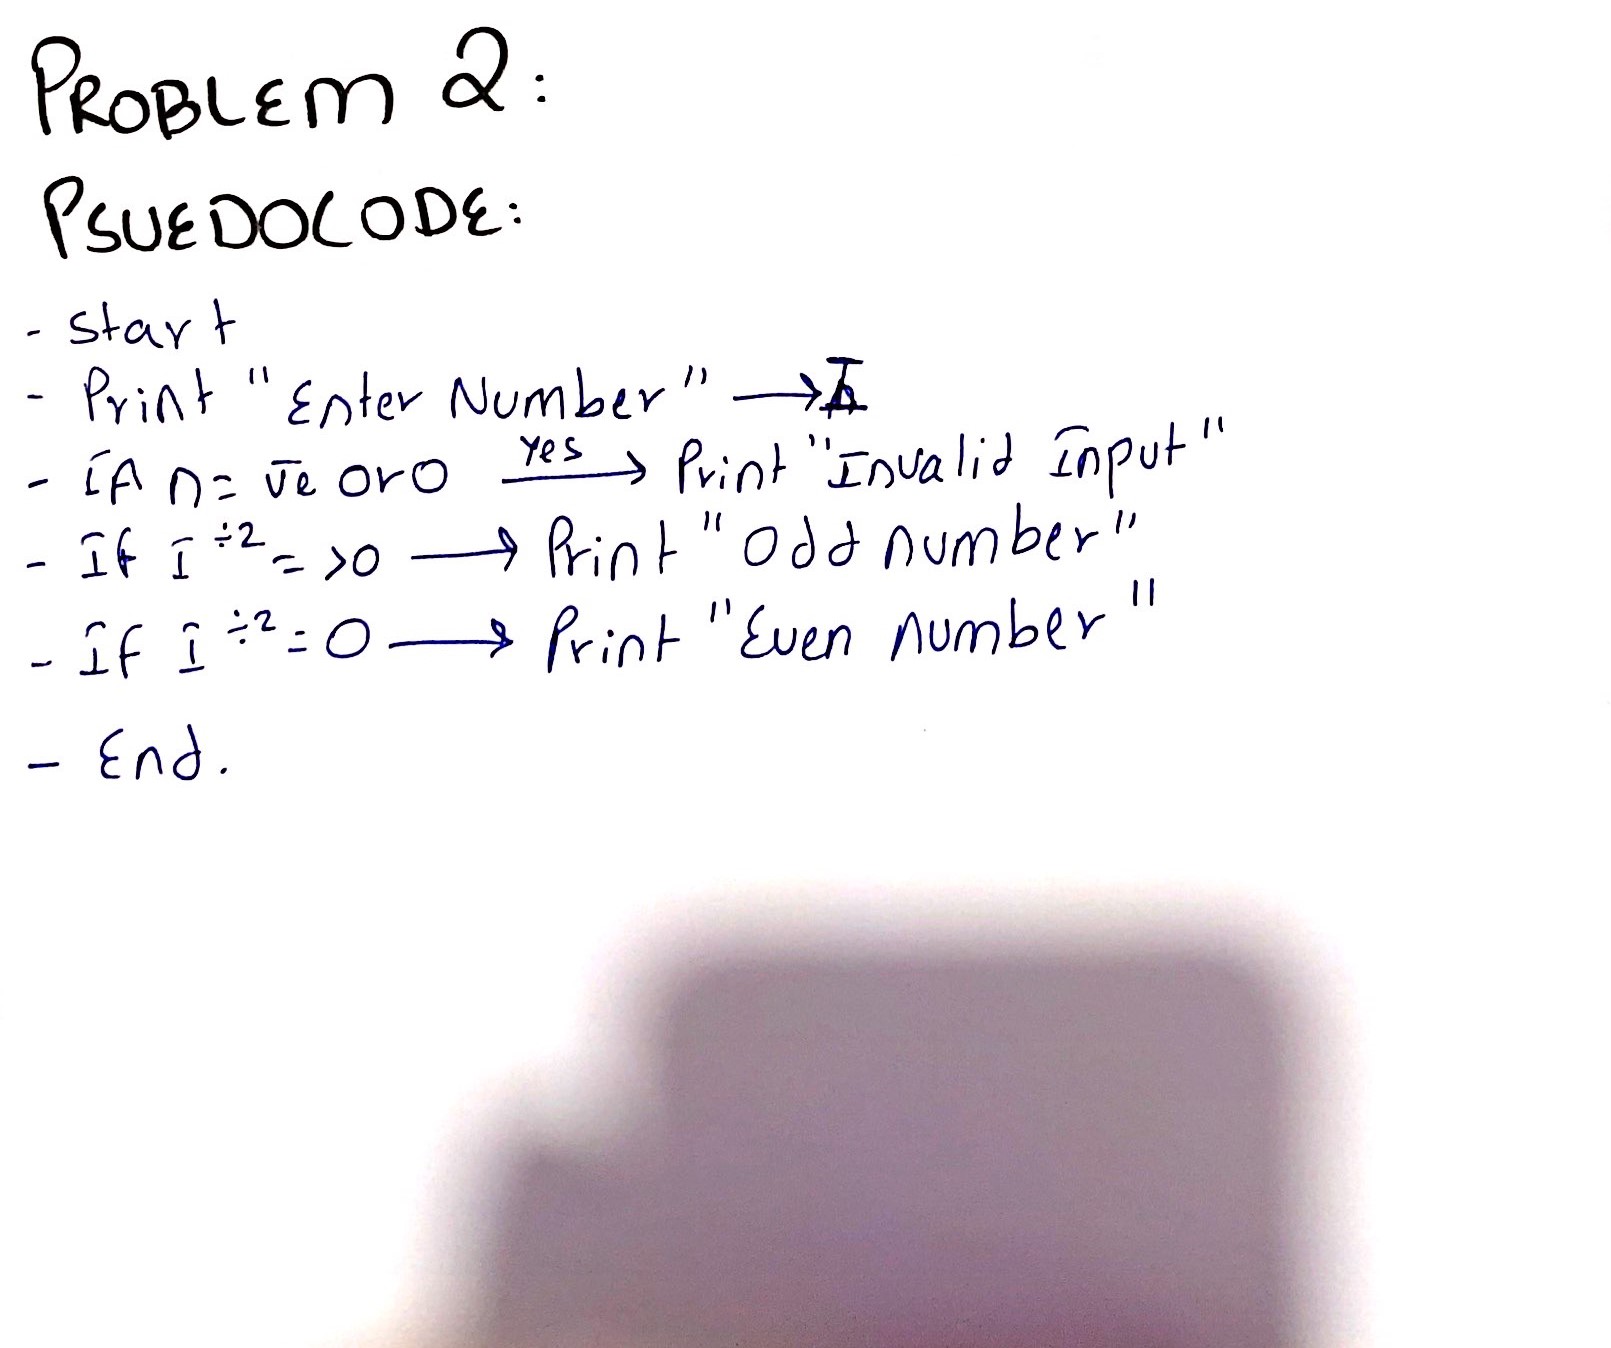 PROBLEM 2:
PSUEDOCODE:
- Start
- Print "Enter Number" → I
- If n = -ve or 0 yes → Print "Invalid Input"
- If I ÷2 = >0 → Print "Odd number"
- If I ÷2 = 0 → Print "Even number"
- End.